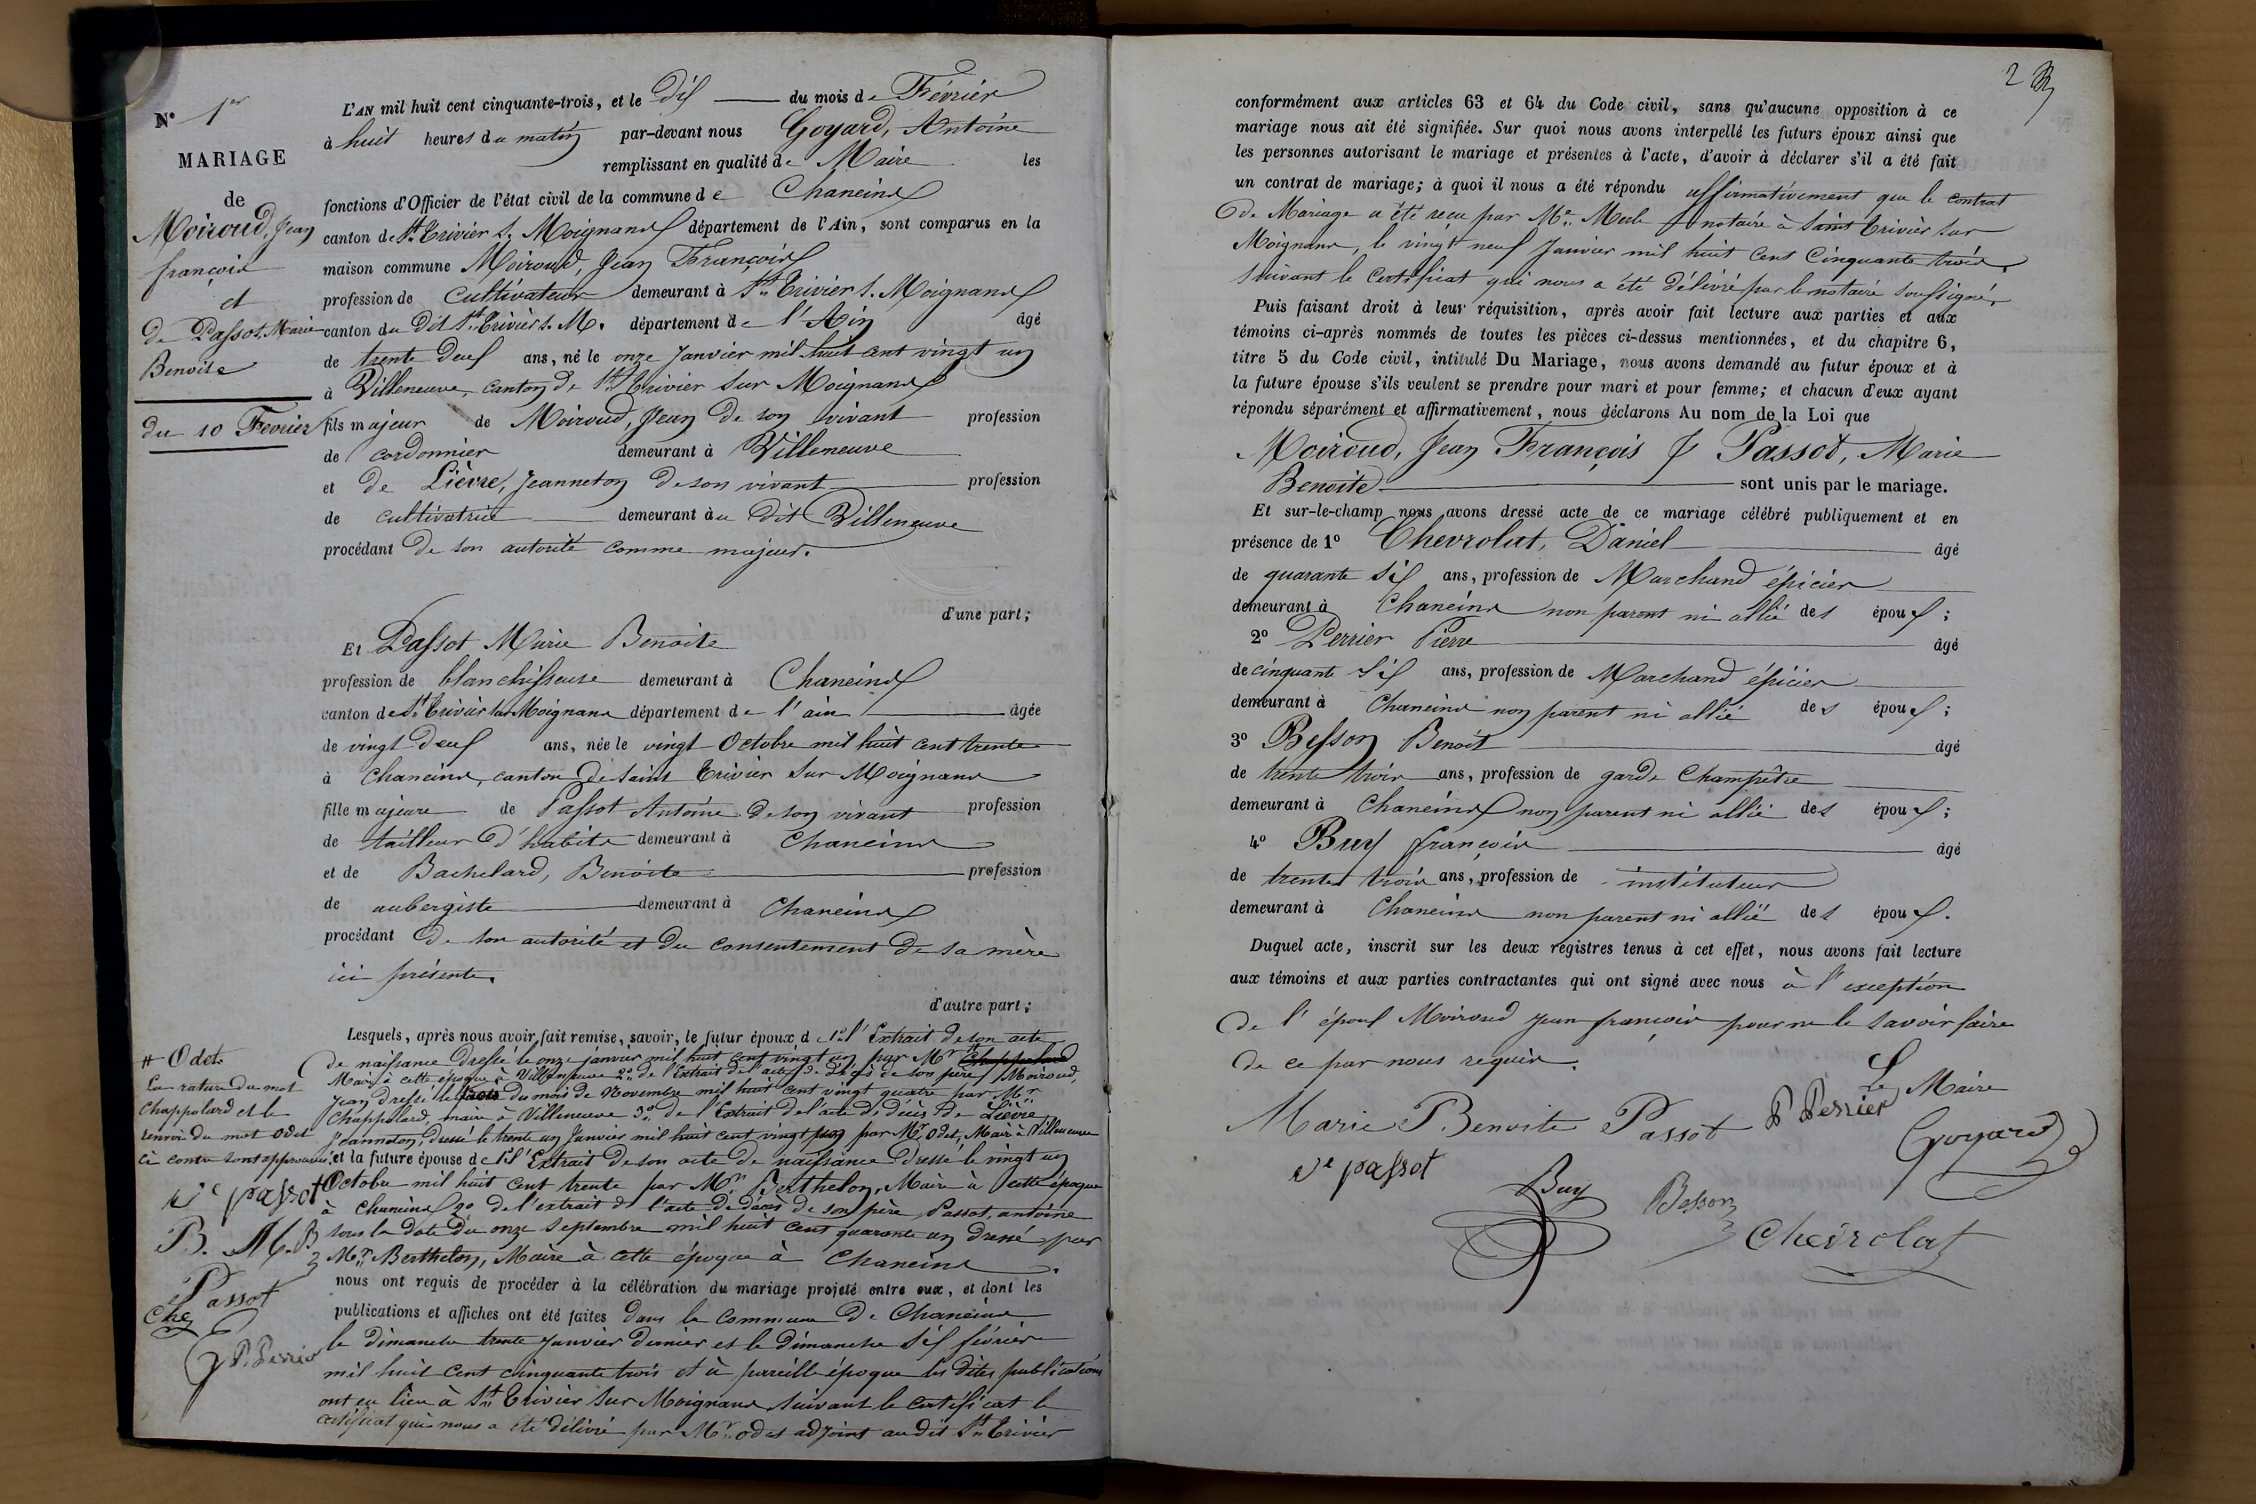 N° 1er
MARIAGE
de
Moiroud, Jean
françois
et
De Passot, Marie
Benoite
du 10 Fevrier
L'AN mil huit cent cinquante-trois, et le Dix du mois de Février
à huit heures du matin par-devant nous Goyard, Antoine
remplissant en qualité de Maire les
fonctions d'Officier de l'état civil de la commune de Chaneins
canton de St Trivier s. Moignans département de l'Ain, sont comparus en la
maison commune Moiroud, Jean François
profession de Cultivateur demeurant à St Trivier s. Moignans
canton du Dit St Trivier s. M. département de l'Ain âgé
de trente deux ans, né le onze Janvier mil huit cent vingt un
à Villeneuve, canton de St Trivier sur Moignans
fils majeur de Moiroud, Jean de son vivant profession
de cordonnier demeurant à Villeneuve
et de Lièvre, Jeanneton de son vivant profession
de cultivatrice demeurant au Dit Villeneuve
procédant de son autorité comme majeur.
d'une part;
Et Passot Marie Benoite
profession de blanchisseuse demeurant à Chaneins
canton de St Trivier sur Moignans département de l'ain âgée
de vingt deux ans, née le vingt Octobre mil huit cent trente
à Chaneins, canton de saint Trivier sur Moignans
fille majeure de Passot Antoine de son vivant profession
de tailleur d'habits demeurant à Chaneins
et de Bachelard, Benoite profession
de aubergiste demeurant à Chaneins
procédant de son autorité et du consentement de sa mère
ici présente.
d'autre part;
Lesquels, après nous avoir fait remise, savoir, le futur époux de 1° l'Extrait de son acte
de naissance dressé le onze janvier mil huit cent vingt un par Mr # Chappolard
Maire à cette époque à Villeneuve 2° de l'Extrait de l'acte de décès de son père Moiroud,
Jean dressé le trois du mois de Novembre mil huit cent vingt quatre par Mr
Chappolard, maire à Villeneuve 3° de l'Extrait de l'acte de décès de Lièvre
Jeanneton, dressé le trente un Janvier mil huit cent vingt par Mr Odet, Maire à Villeneuve
et la future épouse de 1° l'Extrait de son acte de naissance dressé le vingt un
Octobre mil huit cent trente par Mr Berthelon, Maire à cette époque
à Chaneins 2° de l'extrait de l'acte de décès de son père Passot, antoine
sous la date du onze septembre mil huit cent quarante un dressé par
Mr Berthelon, Maire à cette époque à Chaneins
nous ont requis de procéder à la célébration du mariage projeté entre eux, et dont les
publications et affiches ont été faites dans la commune de Chaneins
le dimanche trente Janvier dernier et le dimanche six février
mil huit cent cinquante trois et à pareille époque les dites publications
ont eu lieu à St Trivier sur Moignans suivant le certificat le
certificat qui nous a été délivré par Mr odet adjoint audit St Trivier
# Odet.
La rature du mot
Chappolard et le
renvoi du mot Odet
ci contre sont approuvés
Ve passot
B. M. B
Passot
Che
G P. Perrier
2
conformément aux articles 63 et 64 du Code civil, sans qu'aucune opposition à ce
mariage nous ait été signifiée. Sur quoi nous avons interpellé les futurs époux ainsi que
les personnes autorisant le mariage et présentes à l'acte, d'avoir à déclarer s'il a été fait
un contrat de mariage; à quoi il nous a été répondu affirmativement que le contrat
de Mariage a été reçu par Me notaire à saint Trivier sur
Moignans, le vingt neuf Janvier mil huit cent Cinquante trois,
suivant le certificat qui nous a été délivré par le notaire soussigné.
Puis faisant droit à leur réquisition, après avoir fait lecture aux parties et aux
témoins ci-après nommés de toutes les pièces ci-dessus mentionnées, et du chapitre 6,
titre 5 du Code civil, intitulé Du Mariage, nous avons demandé au futur époux et à
la future épouse s'ils veulent se prendre pour mari et pour femme; et chacun d'eux ayant
répondu séparément et affirmativement, nous déclarons Au nom de la Loi que
Moiroud, Jean François & Passot, Marie
Benoite sont unis par le mariage.
Et sur-le-champ nous avons dressé acte de ce mariage célébré publiquement et en
présence de 1° Chevrolat, Daniel âgé
de quarante six ans, profession de Marchand épicier
demeurant à Chaneins non parent ni allié des époux;
2° Perrier Pierre âgé
de cinquante six ans, profession de Marchand épicier
demeurant à Chaneins non parent ni allié des époux;
3° Besson Benoit âgé
de trente trois ans, profession de garde Champêtre
demeurant à Chaneins non parent ni allié des époux;
4° Buy françois âgé
de trente trois ans, profession de instituteur
demeurant à Chaneins non parent ni allié des époux.
Duquel acte, inscrit sur les deux registres tenus à cet effet, nous avons fait lecture
aux témoins et aux parties contractantes qui ont signé avec nous à l'exception
de l'époux Moiroud jean françois pour ne le savoir faire
de ce par nous requis.
Le Maire
Marie Benoite Passot P Perrier
Goyard
Ve passot
Buy
Besson
Chevrolat